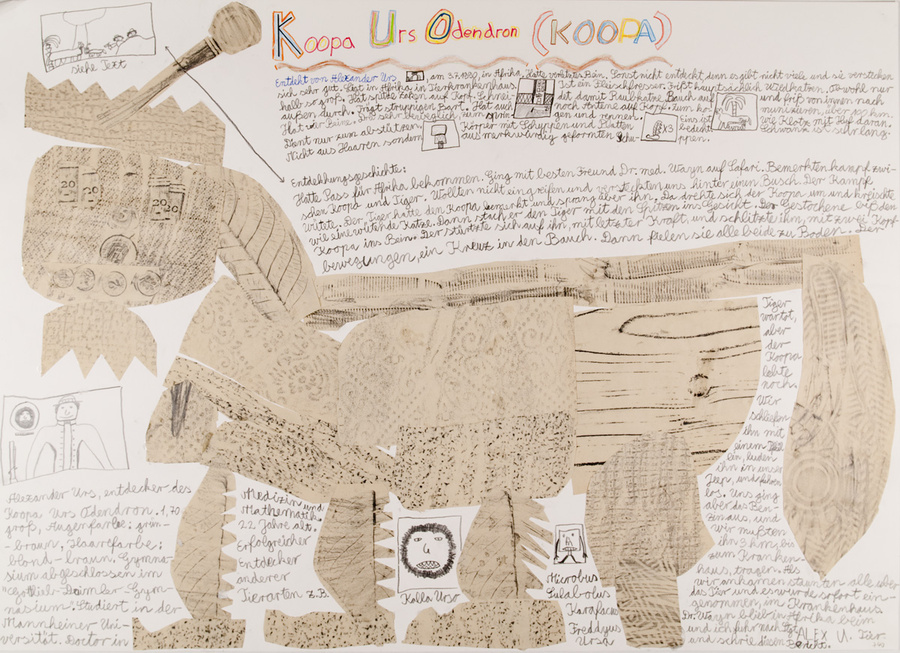 Koopa Urs Odendron (KOOPA)
siehe Text
Entdeckt von Alexander Urs, am 3.7.1930, in Afrika. Hatte verletztes Bein. Sonst nicht entdeckt, denn es gibt nicht viele und sie verstecken
sich sehr gut. Lebt in Afrika in Tierkrankenhaus. Ist ein Fleischfresser. Frißt hauptsächlich Wildkatzen. Obwohl nur
halb so groß. Hat spitze Zoken auf Kopf. Schnei- dit damit Raubkatze Bauch auf und frißt von innen nach
außen durch. Trägt struppigen Bart. Hat auch noch Steine auf Kopf. Zum
Hat vier Beine. Die sehr beweglich, zum sprin- gen und rennen. Eins ist wie Klotz mit Huf daran,
Dient nur zum abstützen. Körper mit Schuppen und Platten bedeckt. Schwanz ist sehr lang.
Nicht aus Haaren sondern aus merkwürdig geformten Schu- ppen.
x3
Entdeckungsgeschichte:
Hatte Pass für Afrika bekommen. Ging mit besten Freund Dr. med. Wayn auf Safari. Bemerkten kampf zwi-
schen Koopa und Tiger. Wollten nicht eingreifen und versteckten uns hinter einen Busch. Der Kampf
wütete. Der Tiger hatte den Koopa bemerkt und sprang über ihn. Da drehte sich der Koopa um und kreischte
wie eine wütende Katze. Dann stach er den Tiger mit den Spitzen ins Gesicht. Der Gestochene biß den
Koopa ins Bein. Der stürzte sich auf ihn, mit letzter Kraft, und schlitzte ihm, mit zwei Kopf-
bewegungen, ein Kreuz in den Bauch. Dann fielen sie alle beide zu Boden. Der
Tiger
war tot,
aber
der
Koopa
lebte
noch.
Wir
schliefen
ihn mit
einem
ein, luden
ihn in unser
Jeep, und fuhren
los. Uns ging
aber das Ben-
zin aus, und
wir mußten
ihn 3 km, bis
zum Kranken-
haus, tragen. Als
wir ankamen staunten alle über
das Tier und es wurde sofort ein-
genommen, im Krankenhaus.
Dr. Wayn blieb in Afrika beim Tier
und ich fuhr nach
und schrieb diesen Bericht.
ALEX U.
20 20
20 20
Alexander Urs, entdecker des
Koopa Urs Odendron. 1,70
groß, Augenfarbe: grün-
-braun, Haarefarbe:
blond-braun. Gymna-
sium abgeschlossen im
"Gottlieb-Daimler Gym-
nasium". Studiert in der
Mannheimer Uni-
versität. Doctor in
Medizin und
Mathematik.
22 Jahre alt.
Erfolgreicher
Entdecker
anderer
Tierarten z.B.
Kolla Urso
Microbus
Sulabolus
Karafacus
Freddyus
Ursa